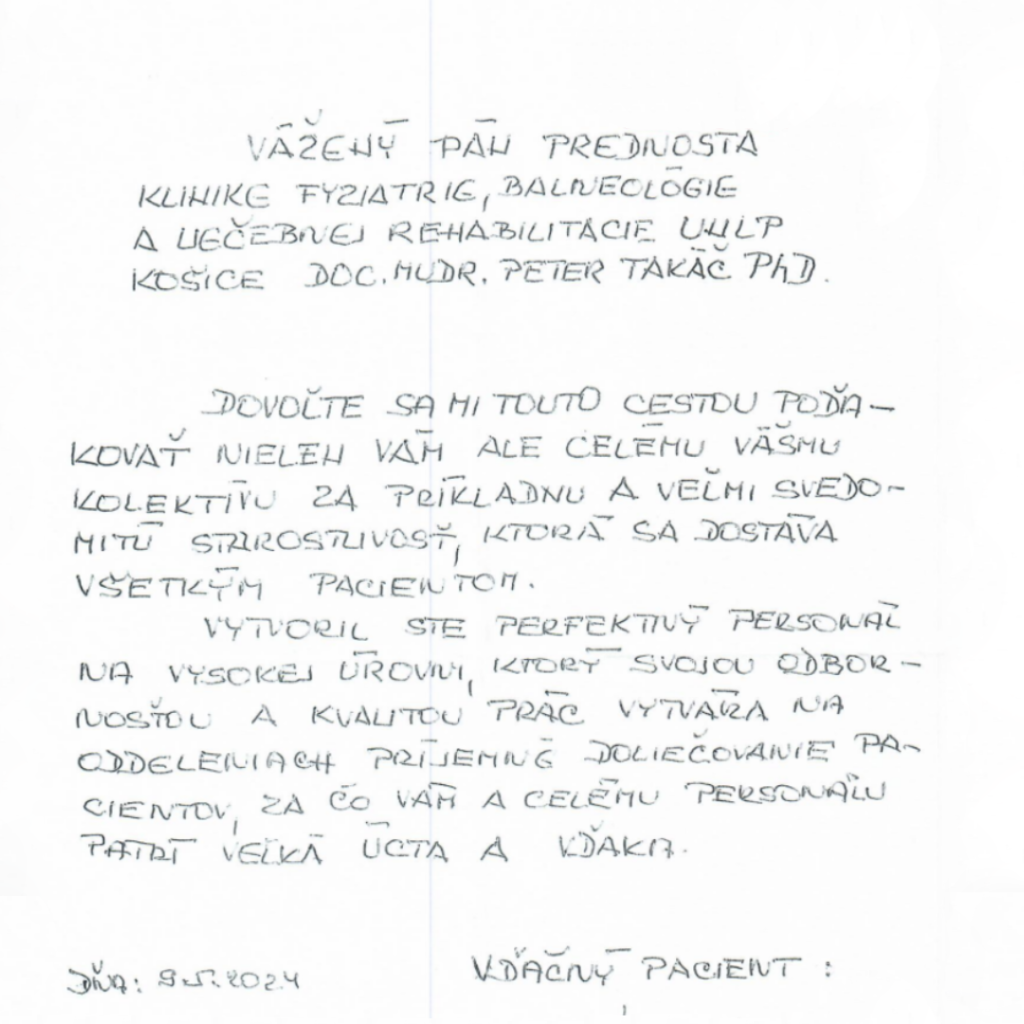 VÁŽENÝ PÁN PREDNOSTA
KLINIKE FYZIATRIE, BALNEOLÓGIE
A LIEČEBNEJ REHABILITÁCIE UNLP
KOŠICE DOC. MUDR. PETER TAKÁČ PhD.
DOVOĽTE SA MI TOUTO CESTOU POĎA-
KOVAŤ NIELEN VÁM ALE CELÉMU VÁŠMU
KOLEKTÍVU ZA PRÍKLADNU A VEĽMI SVEDO-
MITÚ STAROSTLIVOSŤ, KTORÁ SA DOSTÁVA
VŠETKÝM PACIENTOM.
VYTVORIL STE PERFEKTNÝ PERSONÁL
NA VYSOKEJ ÚROVNI, KTORÝ SVOJOU ODBOR-
NOSŤOU A KVALITOU PRÁC VYTVÁRA NA
ODDELENIACH PRÍJEMNÉ DOLIEČOVANIE PA-
CIENTOV, ZA ČO VÁM A CELÉMU PERSONÁLU
PATRÍ VEĽKÁ ÚCTA A VĎAKA.
DŇA: 9.5.2024 VĎAČNÝ PACIENT :